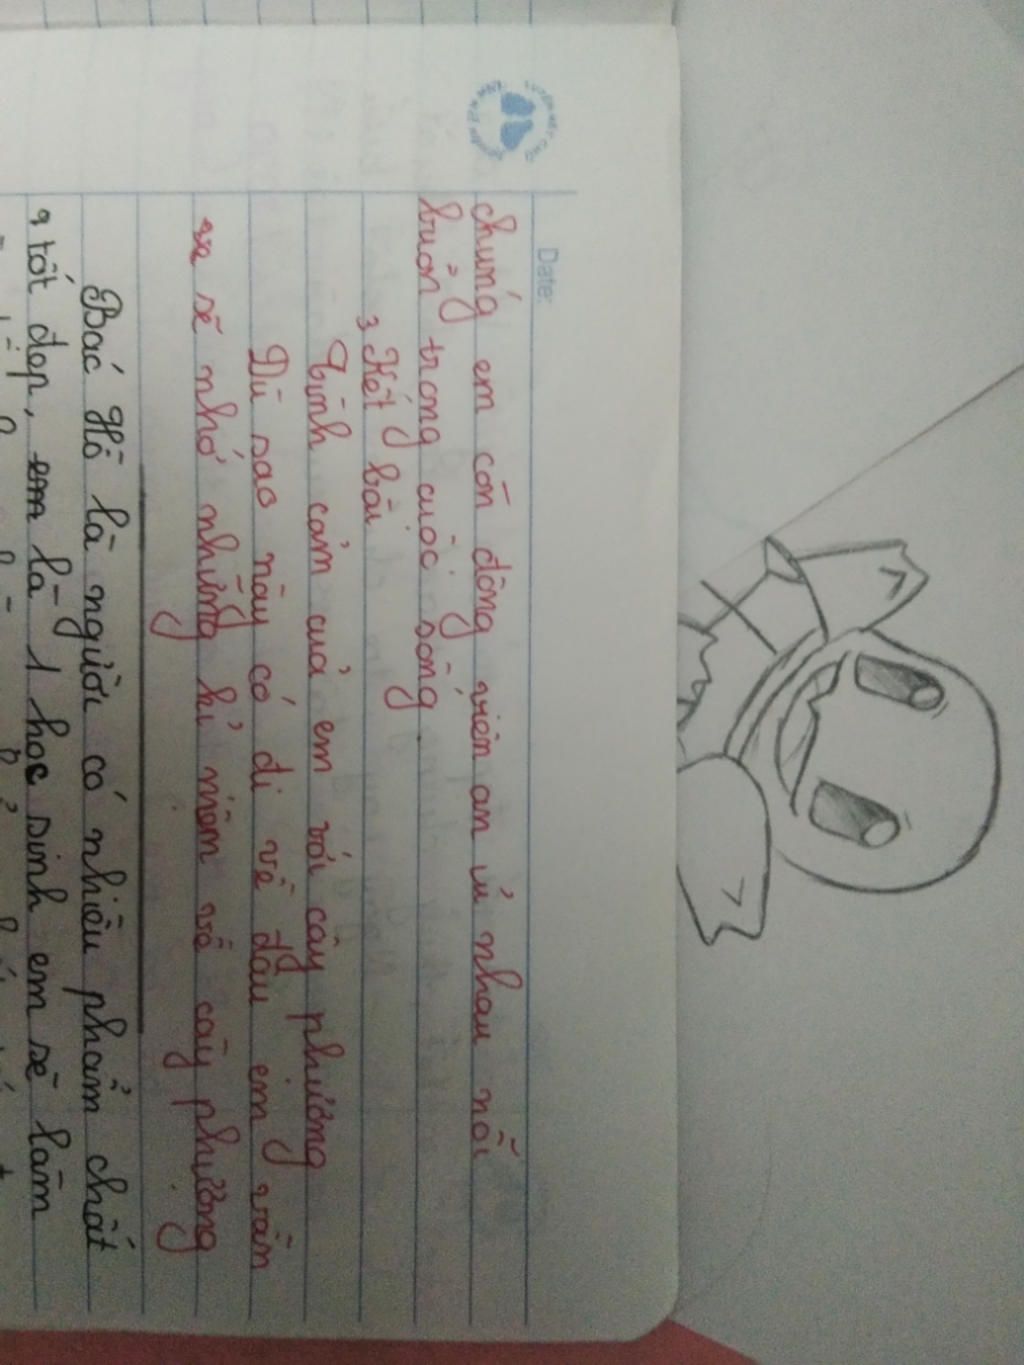 Date:
chúng em còn động viên an ủi nhau nỗi
buồn trong cuộc sống.
3 Kết bài
Tình cảm của em với cây phượng
Dù sao này có đi về đâu em vẫn
sẽ nhớ những kỉ niệm về cây phượng
Bác Hồ là người có nhiều phẩm chất
tốt đẹp, em là 1 học sinh em sẽ làm